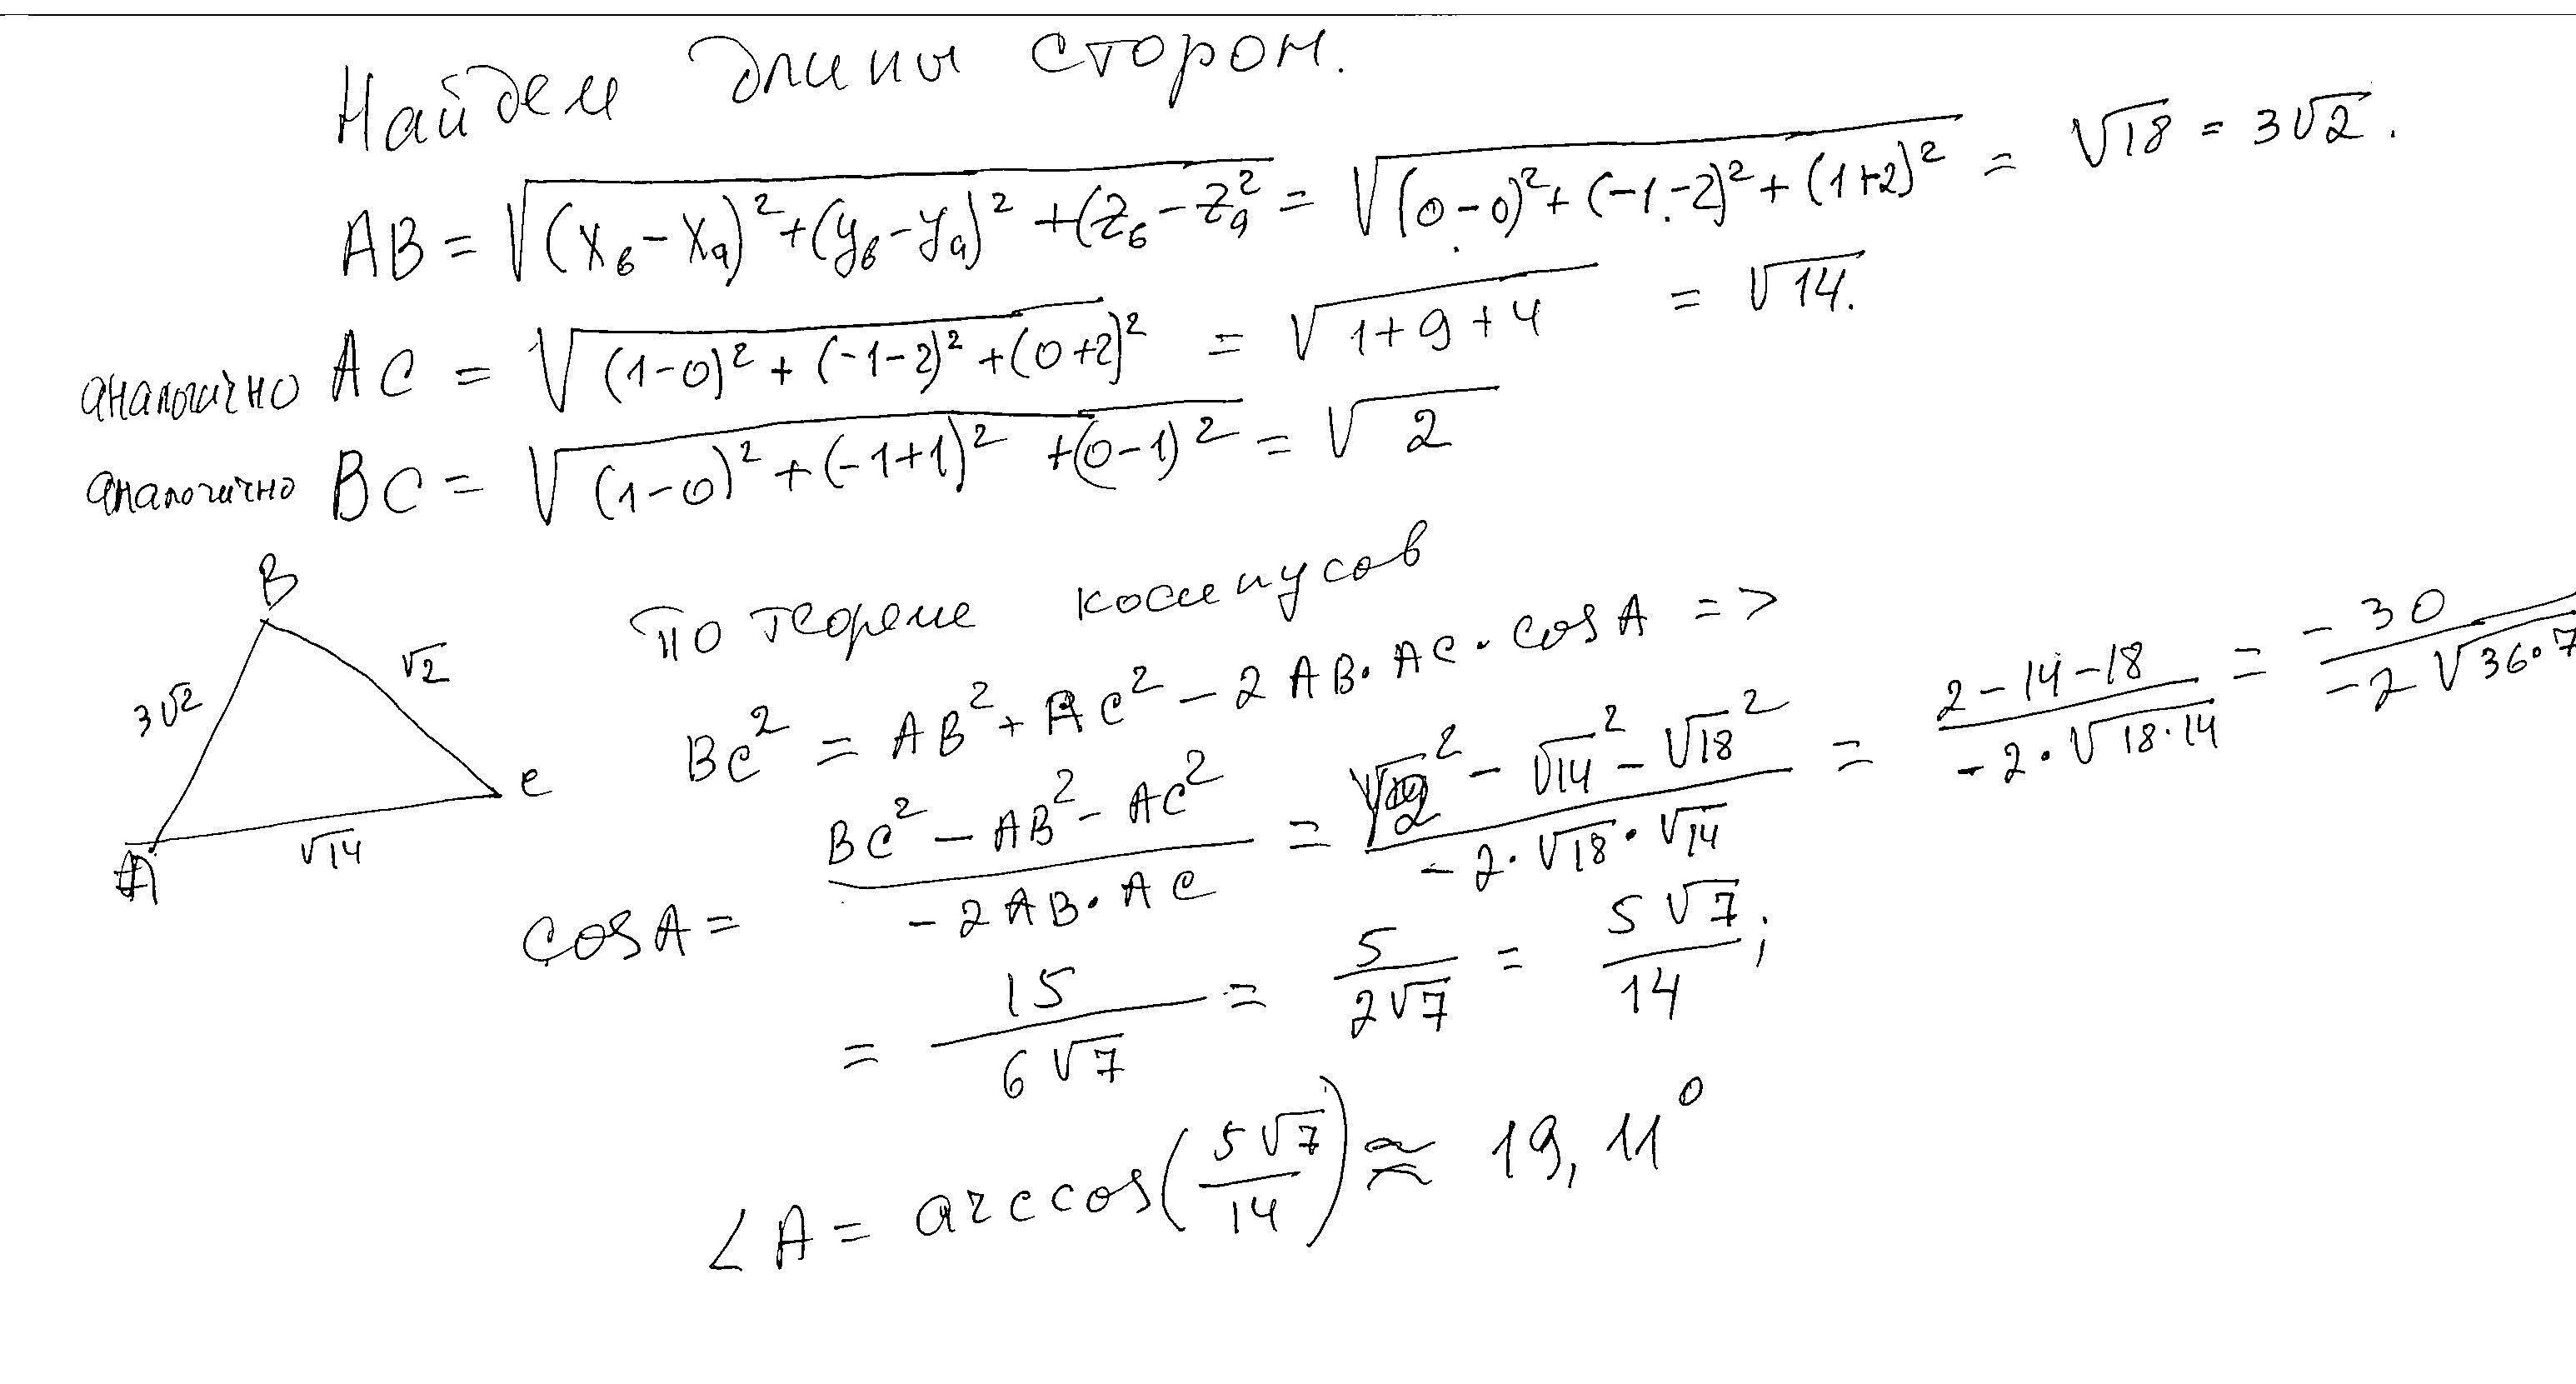 Найдем длины сторон.
AB = √((x_в − x_а)² + (y_в − y_а)² + (z_в − z_а² = √((0−0)² + (−1−2)² + (1+2)²) = √18 = 3√2.
аналогично AC = √((1−0)² + (−1−2)² + (0+2)²) = √(1+9+4) = √14.
аналогично BC = √((1−0)² + (−1+1)² + (0−1)²) = √2
B
3√2
√2
A
√14
C
По теореме косинусов
BC² = AB² + AC² − 2AB·AC·cosA =>
cosA = (BC² − AB² − AC²)/(−2AB·AC) = (√2² − √14² − √18²)/(−2·√18·√14) = (2−14−18)/(−2·√18·14) = −30/(−2√36·7
= 15/(6√7) = 5/(2√7) = 5√7/14;
∠A = arccos(5√7/14) ≈ 19,11°